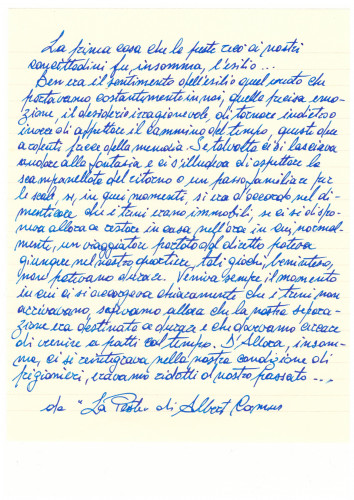 La prima cosa che la peste recò ai nostri
concittadini fu, insomma, l'esilio...
Ben era il sentimento dell'esilio quel vuoto che
portavamo costantemente in noi, quella precisa emo-
zione, il desiderio irragionevole, di tornare indietro o
invece di affrettare il cammino del tempo, queste due
ardenti frecce della memoria. Se talvolta ci si lasciava
andare alla fantasia e ci s'illudeva di aspettare la
scampanellata del ritorno o un passo familiare per
le scale, si, in quei momenti, si era d'accordo nel di-
menticare che i treni erano immobili, se ci si dispo-
neva allora a restare in casa nell'ora in cui, normal-
mente, un viaggiatore portato dal diretto poteva
giungere nel nostro quartiere, tali giochi, beninteso,
non potevano durare. Veniva sempre il momento
in cui ci si accorgeva chiaramente che i treni non
arrivavano, sapevamo allora che la nostra separa-
zione era destinata a durare e che dovevamo cercare
di venire a patti col tempo. D'Allora, insom-
ma, ci si reintegrava nella nostra condizione di
prigionieri, eravamo ridotti al nostro passato...,
da "La Peste" di Albert Camus